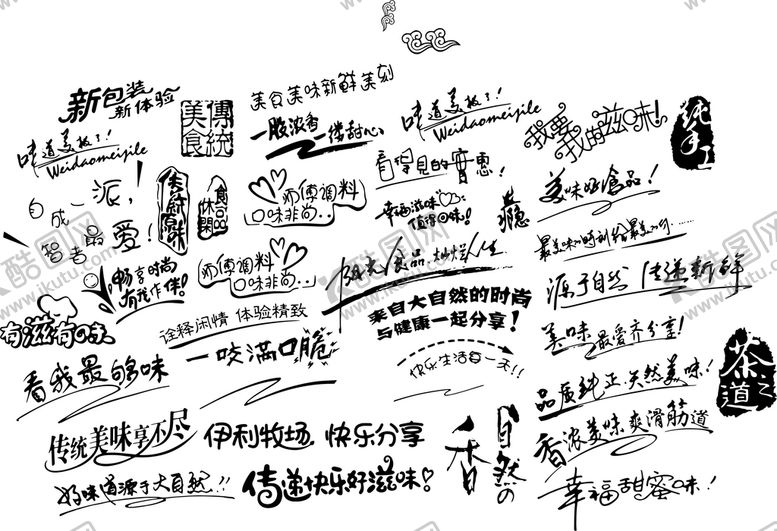 新包装
新体验
味道美极了!
Weidaomeijile
傳統
美食
美食美味新鮮美刻
一股浓香
一缕甜心
味道美极了!
Weidaomeijile
我要我的滋味!
純手工
自成一派,
智者最爱!
传统原味
食品
休閑
师傅調料
口味非尚...
看得見的實惠!
幸福滋味
值得回味!
瘾
美味好食品!
畅享时尚
有我作伴!
师傅調料
口味非尚...
食品·灿烂人生
最美味的时刻给最美的你......
源于自然 传递新鲜
有滋有味
诠释闲情 体验精致
来自大自然的时尚
与健康一起分享!
美味最爱齐分享!
看我最够味
一咬满口脆
快乐生活每一天!!
品质纯正·天然美味!
茶之道
传统美味享不尽
伊利牧场 快乐分享
自然の香
香浓美味爽滑筋道
好味道源于大自然!!
传递快乐好滋味!
幸福甜蜜味!
酷图网
www.ikutu.com